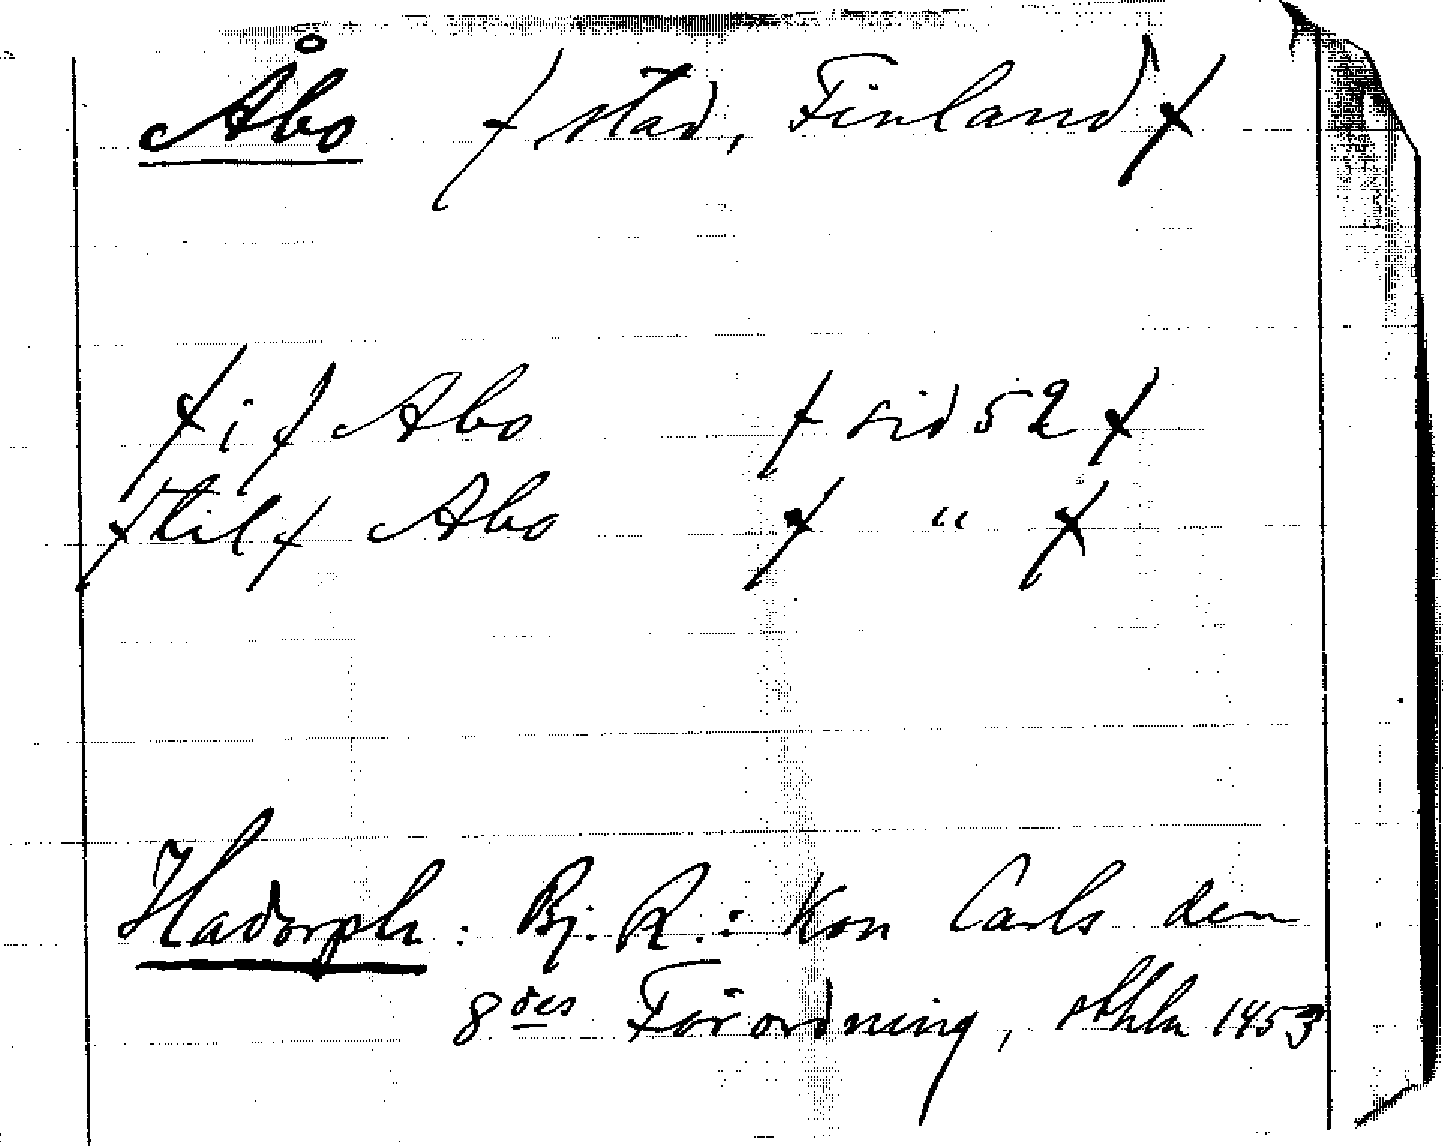 Åbo / stad, Finland /
/ i / Abo / sid 52 /
/ til / Abo / " /
Hadorph : Bj. R.: Kon Carls den
8des Förordning, sthlm 1453